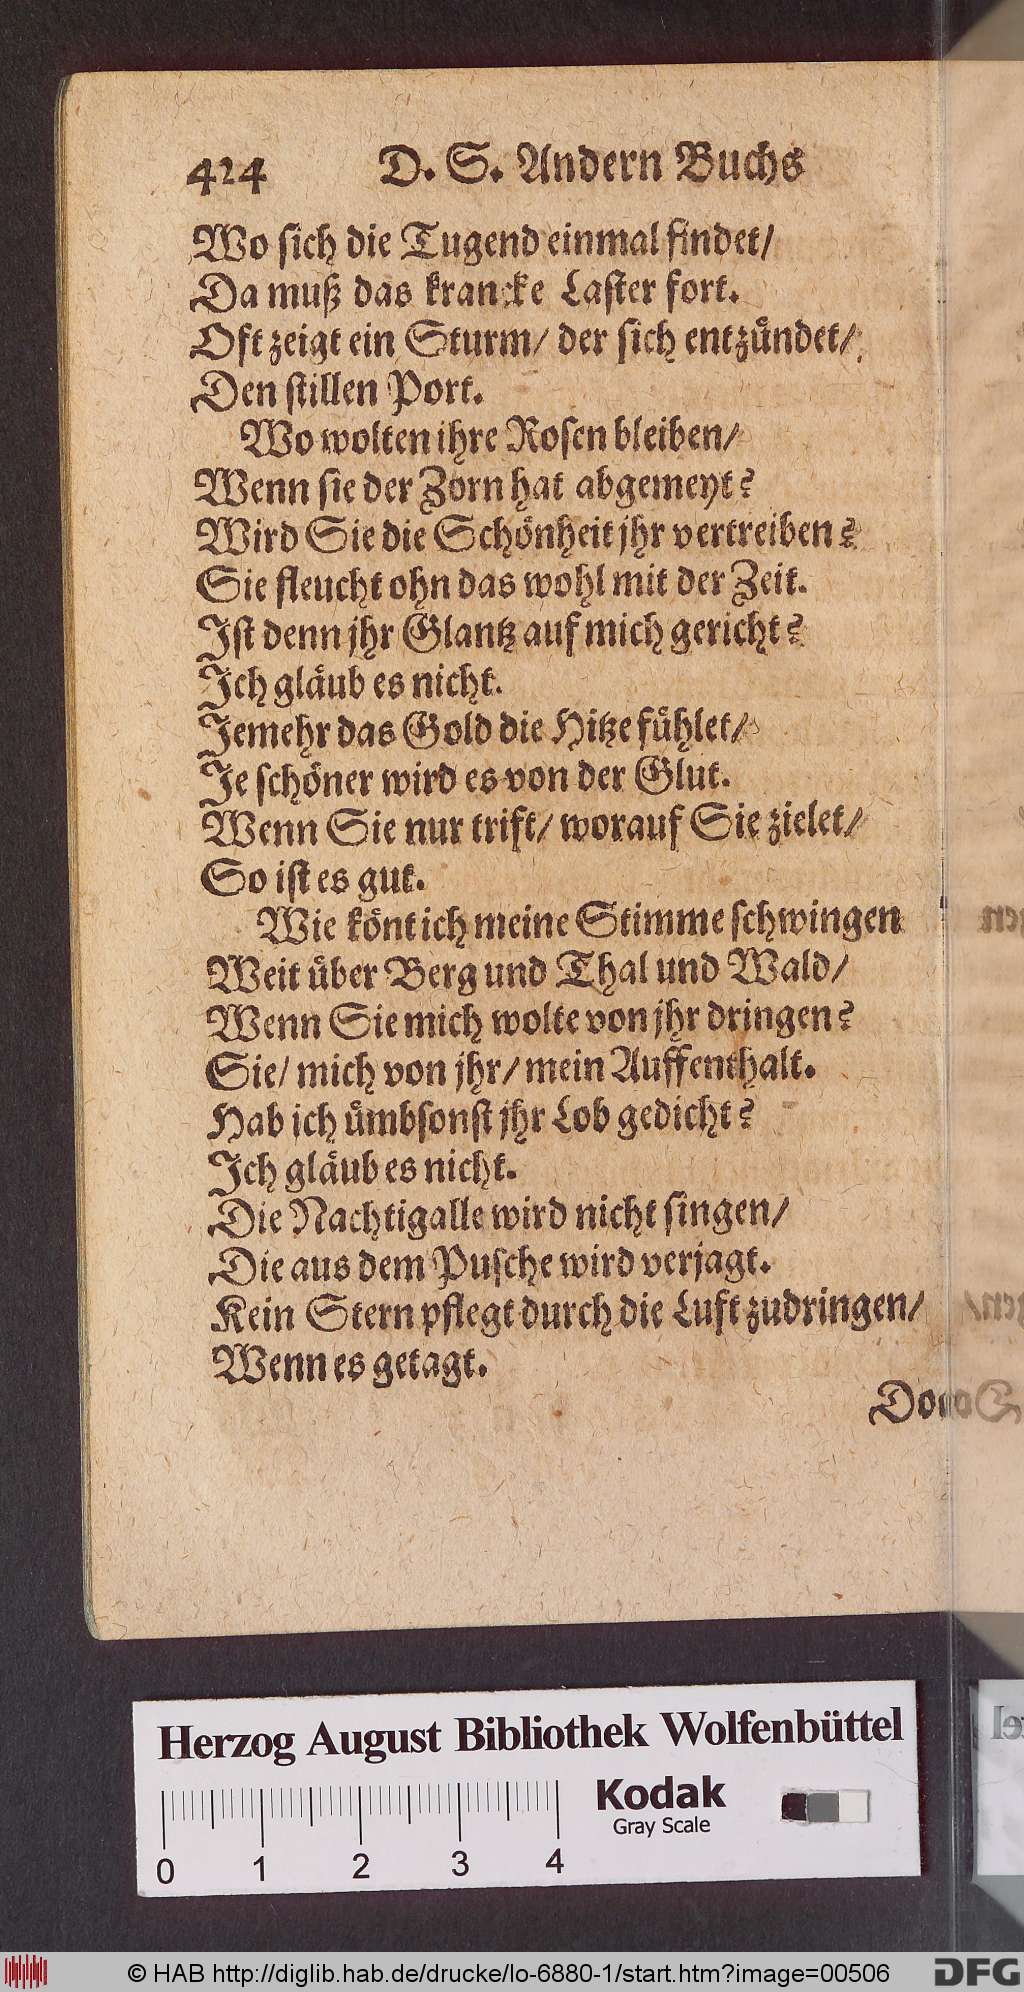 424 D. S. Andern Buchs
Wo sich die Tugend einmal findet/
Da muß das krancke Laster fort.
Oft zeigt ein Sturm/ der sich entzuͤndet/
Den stillen Port.
Wo wolten ihre Rosen bleiben/
Wenn sie der Zorn hat abgemeyt?
Wird Sie die Schoͤnheit jhr vertreiben?
Sie fleucht ohn das wohl mit der Zeit.
Ist denn jhr Glantz auf mich gericht?
Ich glaͤub es nicht.
Jemehr das Gold die Hitze fuͤhlet/
Je schoͤner wird es von der Glut.
Wenn Sie nur trift/ worauf Sie zielet/
So ist es gut.
Wie koͤnt ich meine Stimme schwingen
Weit uͤber Berg und Thal und Wald/
Wenn Sie mich wolte von jhr dringen?
Sie/ mich von jhr/ mein Auffenthalt.
Hab ich uͤmbsonst jhr Lob gedicht?
Ich glaͤub es nicht.
Die Nachtigalle wird nicht singen/
Die aus dem Pusche wird verjagt.
Kein Stern pflegt durch die Luft zudringen/
Wenn es getagt.
Herzog August Bibliothek Wolfenbüttel
Kodak
Gray Scale
0 1 2 3 4
© HAB http://diglib.hab.de/drucke/lo-6880-1/start.htm?image=00506
DFG